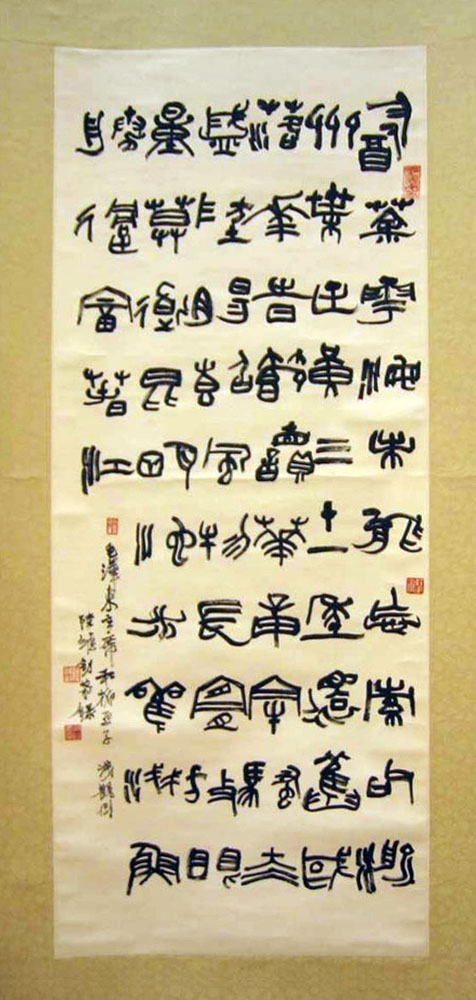 飲茶粵海未能忘索句渝
州葉正黃三十一年還舊國
落花時節讀華章牢騷太
盛防腸斷風物長宜放眼
量莫道昆明池水觀淺魚
勝過富春江
毛澤東主席和柳亞子 淺觀倒
陸維釗敬錄